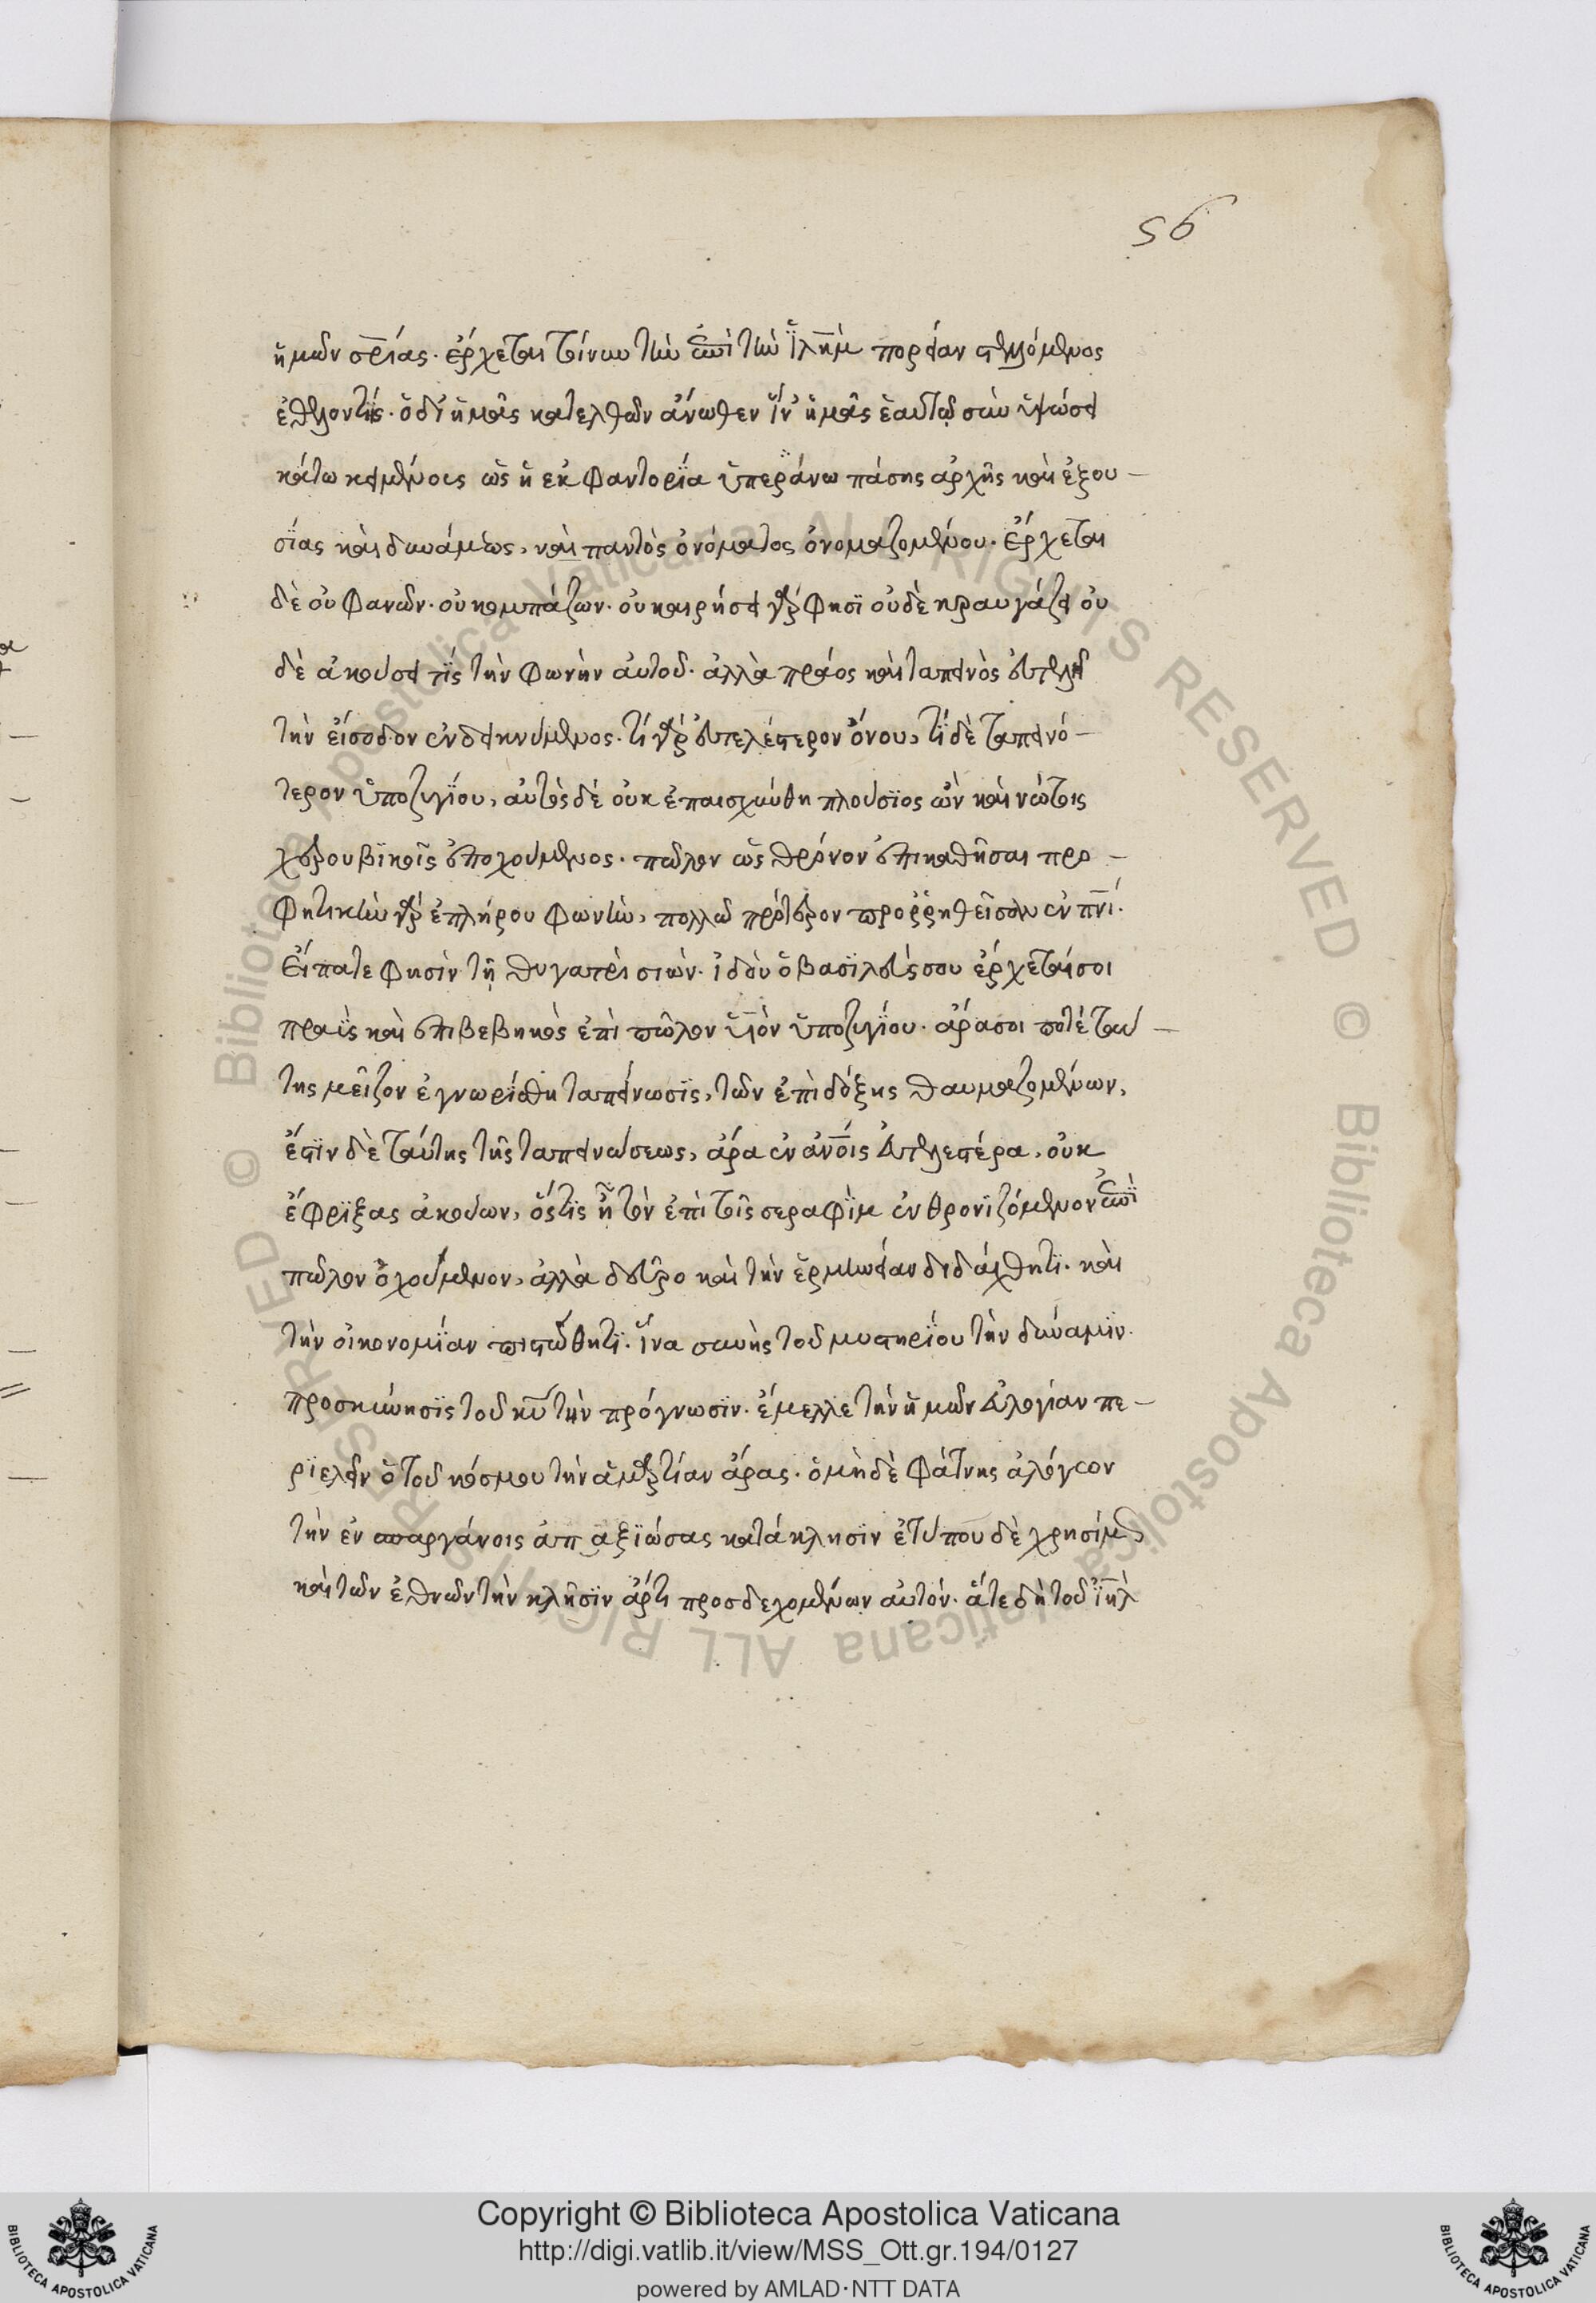 56
ἡμῶν σρίας. ἔρχεται τοίνυν τὴν ἐπὶ τὴν ἱλὴμ πορείαν στελλόμενος
ἐθελοντὶς. ὁ δι' ἡμᾶς κατελθὼν ἄνωθεν ἵν' ἡμᾶς ἑαυτῷ συν ὑψώσει
κάτω κειμένοις ὡς ἡ ἐκφαντορία ὑπεράνω πάσης ἀρχῆς καὶ ἐξου-
σίας καὶ δυνάμεως, καὶ παντὸς ὀνόματος ὀνομαζομένου. ἔρχεται
δὲ οὐ φανῶν. οὐ κομπάζων. οὐ καιρήσει γάρ φησι οὐδὲ κραυγάζει οὐ
δὲ ἀκούσει τίς τὴν φωνὴν αὐτοῦ. ἀλλὰ πράος καὶ ταπεινὸς εὐτελῆ
τὴν εἴσοδον ἐνδεικνύμενος. τί γὰρ εὐτελέστερον ὄνου, τί δὲ ταπεινό-
τερον ὑποζυγίου, αὐτὸς δὲ οὐκ ἐπαισχύνθη πλούσιος ὢν καὶ νώτοις
χερουβικοῖς ἐποχούμενος. πῶλον ὡς θρόνον ἐπικαθῆσαι προ-
φητικὴν γὰρ ἐπλήρου φωνὴν, πολλῷ πρότερον προρρηθεῖσαν ἐν πνι.
Εἴπατε φησὶν τῇ θυγατρὶ σιών. ἰδοὺ ὁ βασιλεύς σου ἔρχεταί σοι
πραῢς καὶ ἐπιβεβηκὸς ἐπὶ πῶλον υἱὸν ὑποζυγίου. ἄρασοι ποτέ ταύ-
της μεῖζον ἐγνωρίσθη ταπείνωσις, τῶν ἐπὶ δόξης θαυμαζομένων,
ἔστιν δὲ ταύτης τῆς ταπεινώσεως, ἄρα ἐν ἀνοις εὐτελεστέρα, οὐκ
ἔφριξας ἀκούων, ὅστις ἦ τὸν ἐπὶ τοῖς σεραφὶμ ἐνθρονιζόμενον ἐπὶ
πῶλον ὀχούμενον, ἀλλὰ δεῦρο καὶ τὴν ἑρμηνείαν διδάχθητι. καὶ
τὴν οἰκονομίαν πιστώθητι. ἵνα συνῆς τοῦ μυστηρίου τὴν δύναμιν.
προσκυνήσις τοῦ κυ τὴν πρόγνωσιν. ἔμελλε τὴν ἡμῶν ἀλογίαν πε-
ριελεῖν ὁ τοῦ κόσμου τὴν ἁμαρτίαν ἄρας. ὁ μὴ δὲ φάτνης ἀλόγων
τὴν ἐν σπαργάνοις ἀπαξιώσας κατάκλησιν ἐτύπου δὲ χρησίμως
καὶ τῶν ἐθνῶν τὴν κλῆσιν ἄρτι προσδεχομένων αὐτόν. ἅτε δὴ τοῦ ἰηλ
Copyright © Biblioteca Apostolica Vaticana
http://digi.vatlib.it/view/MSS_Ott.gr.194/0127
powered by AMLAD·NTT DATA